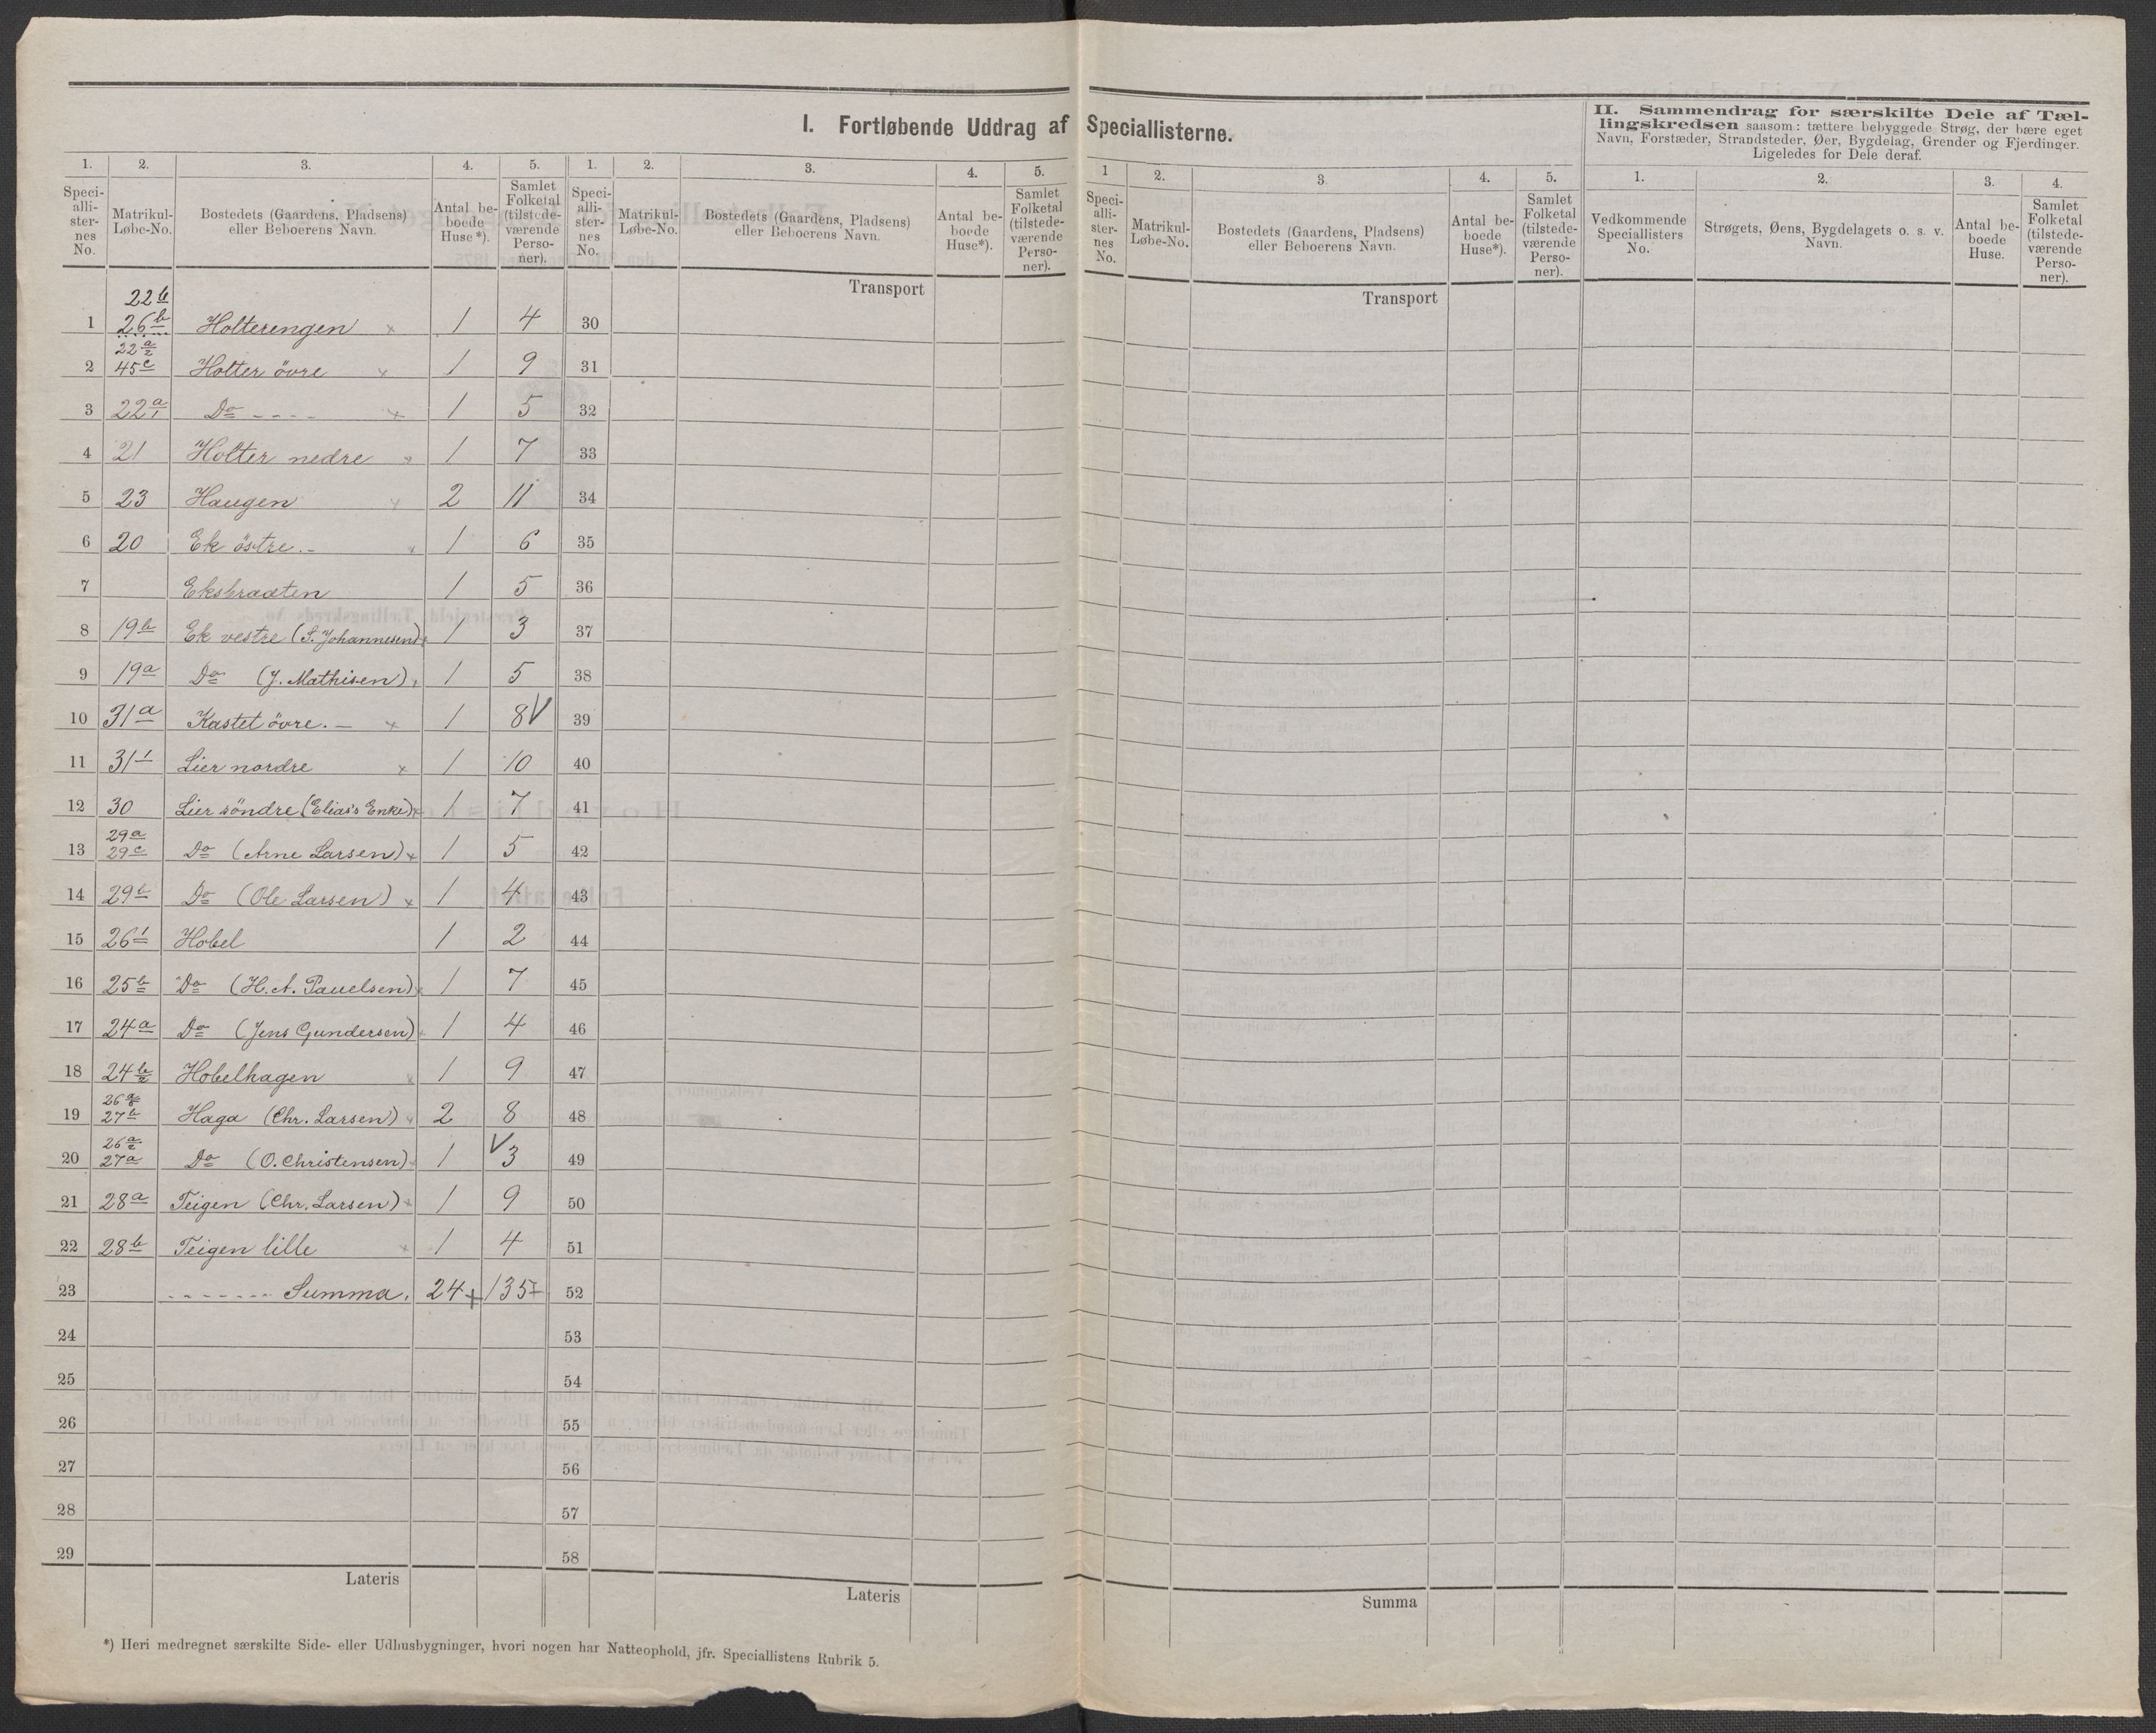 I. Fortløbende Uddrag af Speciallisterne.
II. Sammendrag for særskilte Dele af Tæl-
lingskredsen saasom: tættere bebyggede Strøg, der bære eget
Navn, Forstæder, Strandsteder, Øer, Bygdelag, Grender og Fjerdinger.
Ligeledes for Dele deraf.
1. 2. 3. 4. 5. 1. 2. 3. 4. 5. 1 2. 3. 4. 5. 1. 2. 3. 4.
Speci-
alli-
ster-
nes
No.
Matrikul-
Løbe-No.
Bostedets (Gaardens, Pladsens)
eller Beboerens Navn.
Antal be-
boede
Huse*).
Samlet
Folketal
(tilstede-
værende
Perso-
ner).
Speci-
alli-
ster-
nes
No.
Matrikul-
Løbe-No.
Bostedets (Gaardens, Pladsens)
eller Beboerens Navn.
Antal be-
boede
Huse*).
Samlet
Folketal
(tilstede-
værende
Perso-
ner).
Speci-
alli-
ster-
nes
No.
Matrikul-
Løbe-No.
Bostedets (Gaardens, Pladsens)
eller Beboerens Navn.
Antal be-
boede
Huse*).
Samlet
Folketal
(tilstede-
værende
Perso-
ner).
Vedkommende
Speciallisters
No.
Strøgets, Øens, Bygdelagets o. s. v.
Navn.
Antal be-
boede
Huse.
Samlet
Folketal
(tilstede-
værende
Perso-
ner).
Transport
Transport
22b
1 26b Holterengen × 1 4 30
22a/2
2 45c Holter övre × 1 9 31
3 22a/1 Do - - - - × 1 5 32
4 21 Holter nedre × 1 7 33
5 23 Haugen × 2 11 34
6 20 Ek östre. - × 1 6 35
7 Eksbraaten 1 5 36
8 19b Ek vestre (S. Johannesen) × 1 3 37
9 19a Do (J. Mathisen) 1 5 38
10 31a Kastet övre. - × 1 8 V 39
11 31 1 Lier nordre × 1 10 40
12 30 Lier söndre (Elias's Enke) × 1 7 41
29a
13 29c Do (Arne Larsen) × 1 5 42
14 29b Do (Ole Larsen) × 1 4 43
15 26 1 Hobel 1 2 44
16 25b Do (H. A. Pauelsen) × 1 7 45
17 24a Do (Jens Gundersen) × 1 4 46
18 24b/2 Hobelhagen × 1 9 47
26
19 27b Haga (Chr. Larsen) × 2 8 48
26a/2
20 27a Do (O. Christensen) 1 V 3 49
21 28a Teigen (Chr. Larsen) × 1 9 50
22 28b Teigen lille × 1 4 51
23 - - - - - - - Summa. 24 + 135 + 52
24 53
25 54
26 55
27 56
28 57
29 58
Lateris
Lateris
Summa
*) Heri medregnet særskilte Side- eller Udhusbygninger, hvori nogen har Natteophold, jfr. Speciallistens Rubrik 5.